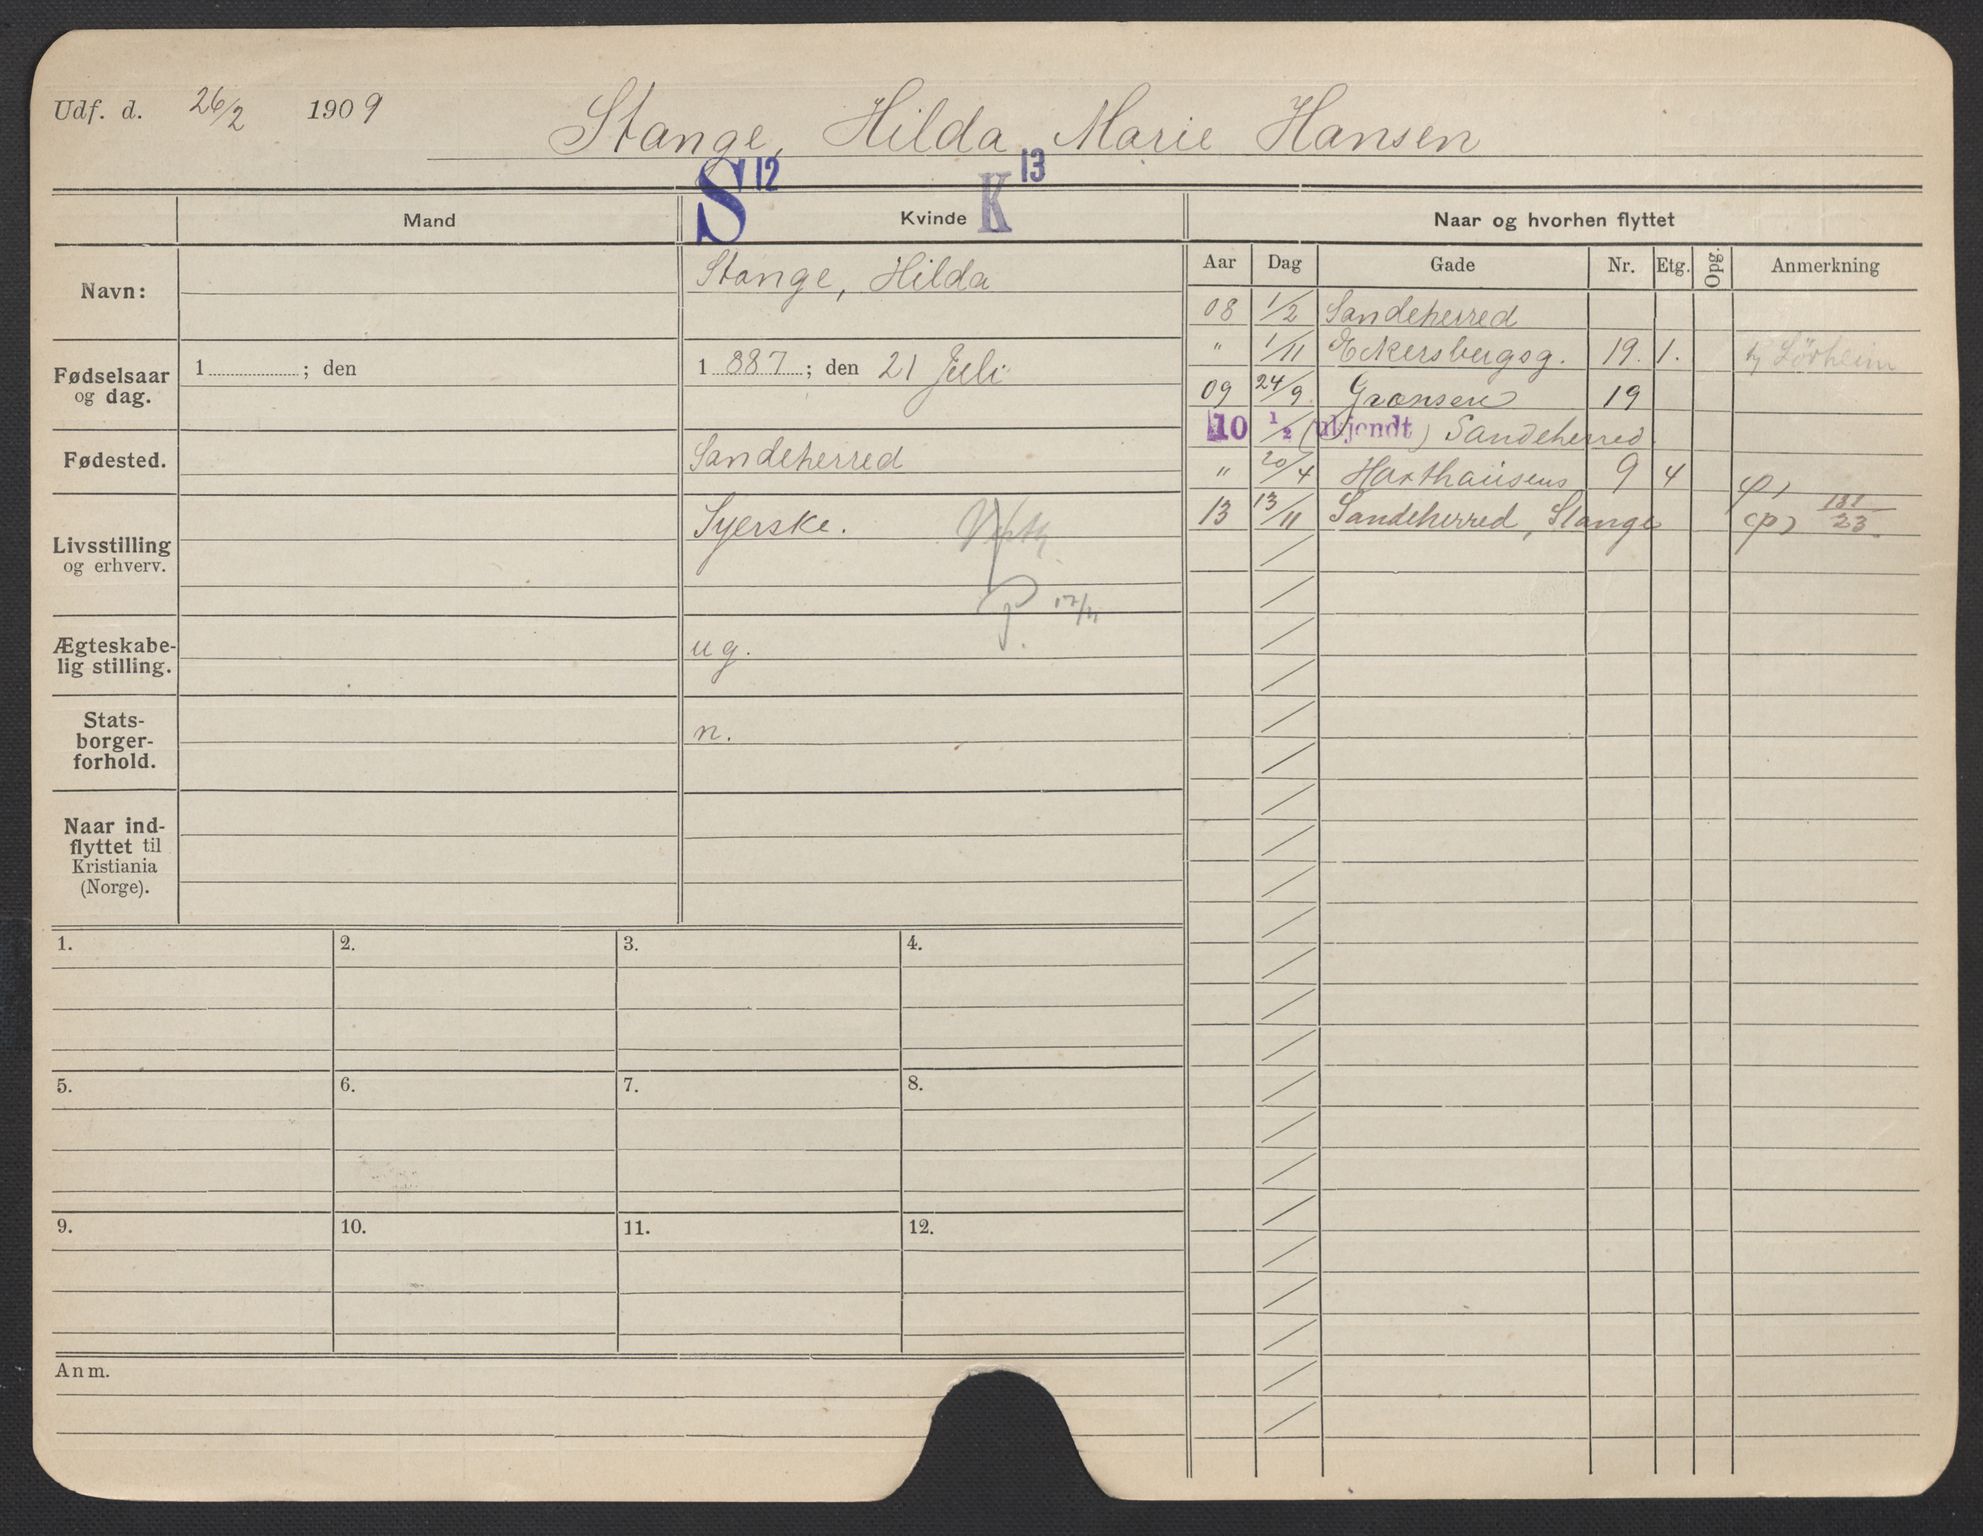 Udf. d. 26/2 1909
Stange, Hilda Marie Hansen
S 12 K 13
Mand Kvinde Naar og hvorhen flyttet
Aar Dag Gade Nr. Etg. Opg. Anmerkning
Navn: Stange, Hilda
Fødselsaar og dag. 1 ; den 1 887 ; den 21 Juli
Fødested. Sandeherred
Livsstilling og erhverv. Syerske.
P. 17/11
Ægteskabelig stilling. ug.
Statsborgerforhold. n.
Naar indflyttet til Kristiania (Norge).
08 1/2 Sandeherred
" 1/11 Eckersbergsg. 19. 1.
09 24/9 Grænsen 19
10 1/2 (ukjendt) Sandeherred.
" 20/4 Haxthausens 9 4
13 13/11 Sandeherred, Stange (p) 181/23.
1. 2. 3. 4.
5. 6. 7. 8.
9. 10. 11. 12.
Anm.